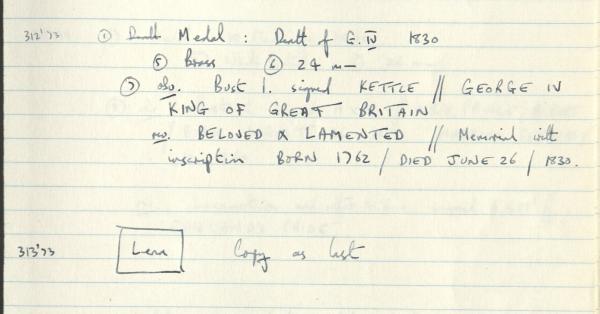 312'73 ① Death Medal : Death of G. IV 1830
⑤ Brass ⑥ 24 mm
⑦ obv. Bust l. signed KETTLE // GEORGE IV
KING OF GREAT BRITAIN
rev. BELOVED & LAMENTED // Memorial with
inscription BORN 1762 / DIED JUNE 26 / 1830.
313'73 Copy as last